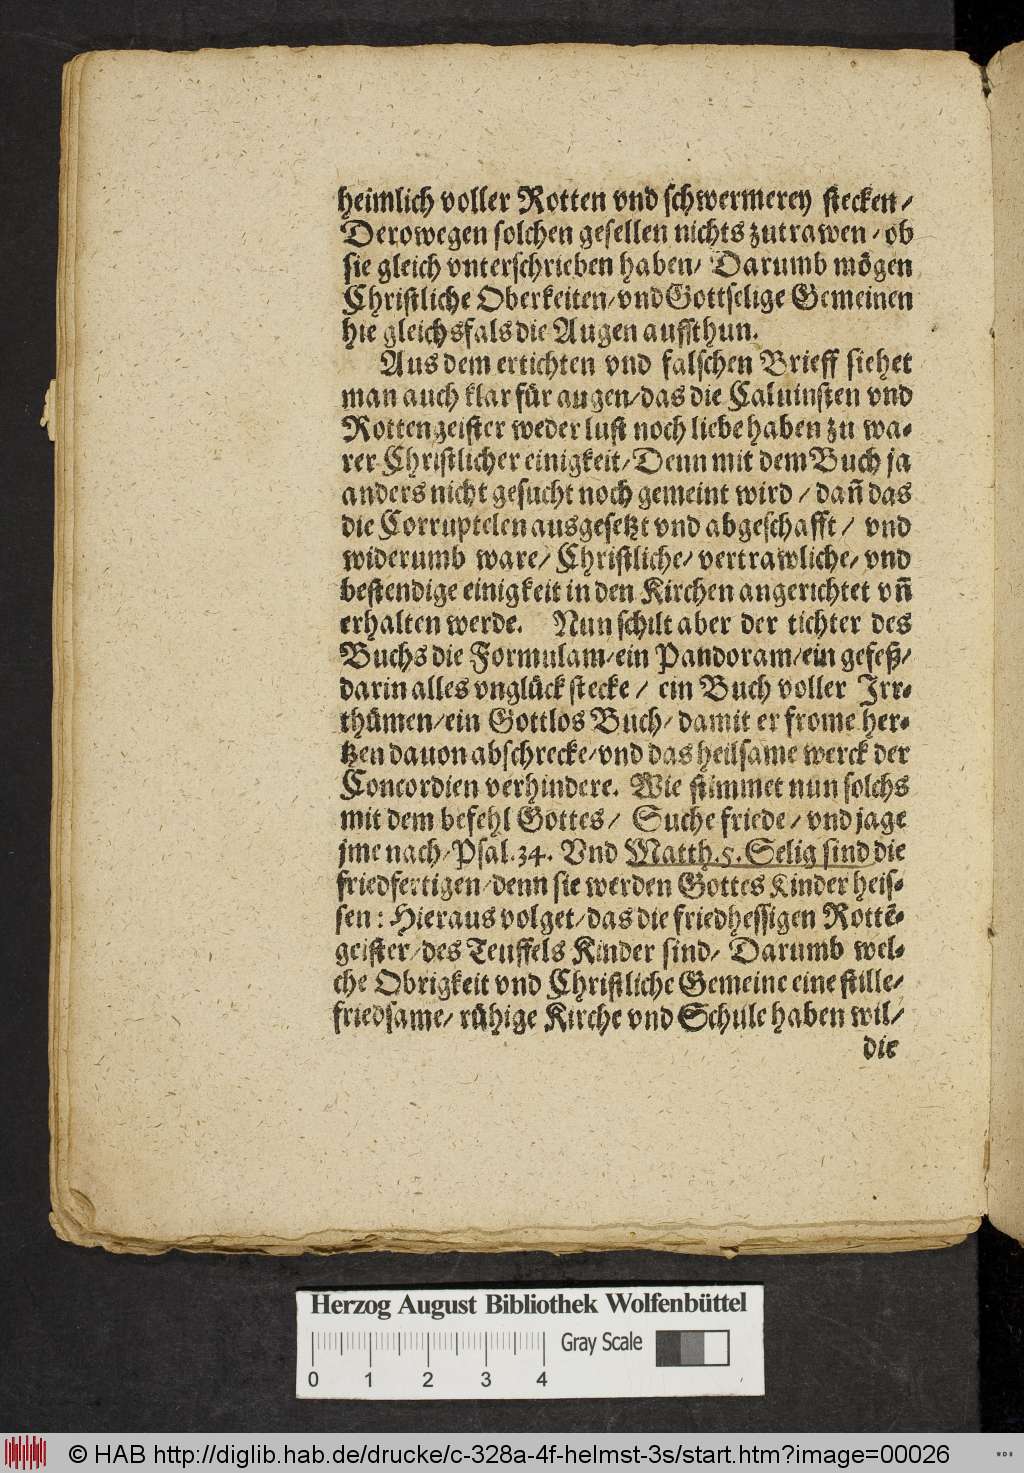 heimlich voller Rotten vnd schwermerey stecken/
Derowegen solchen gesellen nichts zutrawen/ob
sie gleich vnterschrieben haben/ Darumb mögen
Christliche Oberkeiten/vnd Gottselige Gemeinen
hie gleichsfals die Augen auffthun.
Aus dem ertichten vnd falschen Brieff siehet
man auch klar für augen/das die Caluinsten vnd
Rottengeister weder lust noch liebe haben zu wa-
rer Christlicher einigkeit/Denn mit dem Buch ja
anders nicht gesucht noch gemeint wird/dañ das
die Corruptelen ausgesetzt vnd abgeschafft/ vnd
widerumb ware/Christliche/vertrawliche/vnd
bestendige einigkeit in den Kirchen angerichtet vñ
erhalten werde. Nun schilt aber der tichter des
Buchs die Formulam/ein Pandoram/ein gefeß/
darin alles vnglück stecke/ ein Buch voller Irr-
thümen/ein Gottlos Buch/damit er frome her-
tzen dauon abschrecke/vnd das heilsame werck der
Concordien verhindere. Wie stimmet nun solchs
mit dem befehl Gottes/ Suche friede/vnd jage
jme nach/Psal.34. Vnd Matth.5.Selig sind die
friedfertigen/denn sie werden Gottes Kinder heis-
sen: Hieraus volget/das die friedhessigen Rottē-
geister/des Teuffels Kinder sind/ Darumb wel-
che Obrigkeit vnd Christliche Gemeine eine stille/
friedsame/rühige Kirche vnd Schule haben wil/
die
Herzog August Bibliothek Wolfenbüttel
Gray Scale
0 1 2 3 4
© HAB http://diglib.hab.de/drucke/c-328a-4f-helmst-3s/start.htm?image=00026